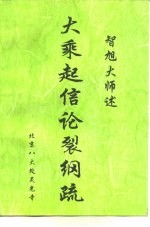 智旭大师述
大乘起信论裂纲疏
北京八大处灵光寺